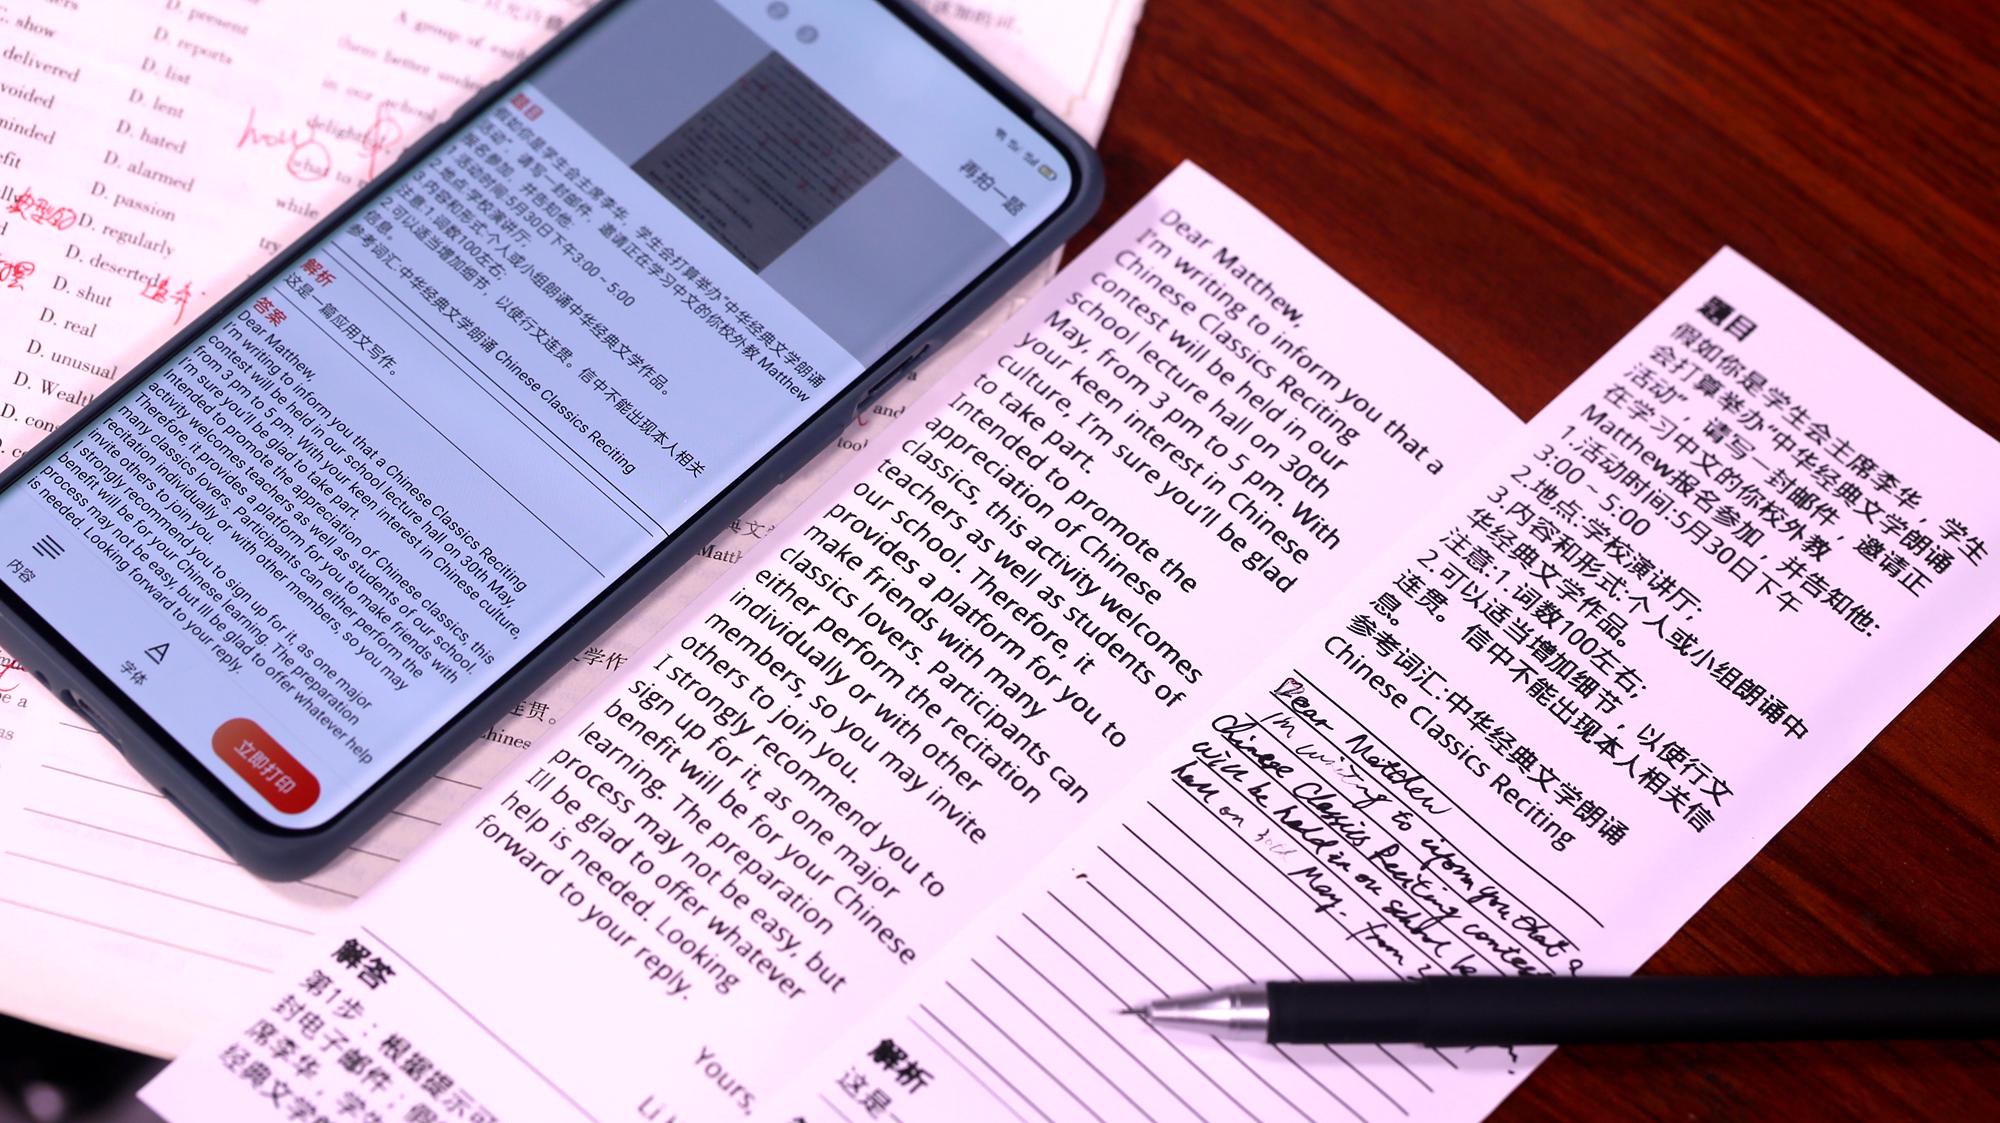 show
delivered
voided
minded
D. present
D. reports
D. list
D. lent
D. hated
D. alarmed
D. passion
D. regularly
D. deserted
D. shut
D. real
D. unusual
D. Wealth
A group of
in our school
delightful
how
what to r
while
try
再拍一题
题目
假如你是学生会主席李华,学生会打算举办“中华经典文学朗诵
活动”,请写一封邮件,邀请正在学习中文的你校外教 Matthew
报名参加,并告知他:
1.活动时间:5月30日下午3:00 ~ 5:00
2.地点:学校演讲厅;
3.内容和形式:个人或小组朗诵中华经典文学作品。
注意:1.词数100左右;
2.可以适当增加细节,以使行文连贯。信中不能出现本人相关
信息。
参考词汇:中华经典文学朗诵 Chinese Classics Reciting
解析
这是一篇应用文写作。
答案
Dear Matthew,
I'm writing to inform you that a Chinese Classics Reciting
contest will be held in our school lecture hall on 30th May,
from 3 pm to 5 pm. With your keen interest in Chinese culture,
I'm sure you'll be glad to take part.
Intended to promote the appreciation of Chinese classics, this
activity welcomes teachers as well as students of our school.
Therefore, it provides a platform for you to make friends with
many classics lovers. Participants can either perform the
recitation individually or with other members, so you may
invite others to join you.
I strongly recommend you to sign up for it, as one major
benefit will be for your Chinese learning. The preparation
process may not be easy, but I'll be glad to offer whatever help
is needed. Looking forward to your reply.
内容
字体
立即打印
Dear Matthew,
I'm writing to inform you that a
Chinese Classics Reciting
contest will be held in our
school lecture hall on 30th
May, from 3 pm to 5 pm. With
your keen interest in Chinese
culture, I'm sure you'll be glad
to take part.
Intended to promote the
appreciation of Chinese
classics, this activity welcomes
teachers as well as students of
our school. Therefore, it
provides a platform for you to
make friends with many
classics lovers. Participants can
either perform the recitation
individually or with other
members, so you may invite
others to join you.
I strongly recommend you to
sign up for it, as one major
benefit will be for your Chinese
learning. The preparation
process may not be easy, but
I'll be glad to offer whatever
help is needed. Looking
forward to your reply.
Yours,
Li
解答
第1步:根据提示可
封电子邮件:假
席李华,学生
经典文学
题目
假如你是学生会主席李华,学生
会打算举办“中华经典文学朗诵
活动”,请写一封邮件,邀请正
在学习中文的你校外教
Matthew报名参加,并告知他:
1.活动时间:5月30日下午
3:00 ~ 5:00
2.地点:学校演讲厅;
3.内容和形式:个人或小组朗诵中
华经典文学作品。
注意:1.词数100左右;
2.可以适当增加细节,以使行文
连贯。信中不能出现本人相关信
息。
参考词汇:中华经典文学朗诵
Chinese Classics Reciting
Dear Matthew
I'm writing to inform you that a
Chinese Classics Reciting contest
will be held in our school le
hall on 30th May. from 3
解析
这是一